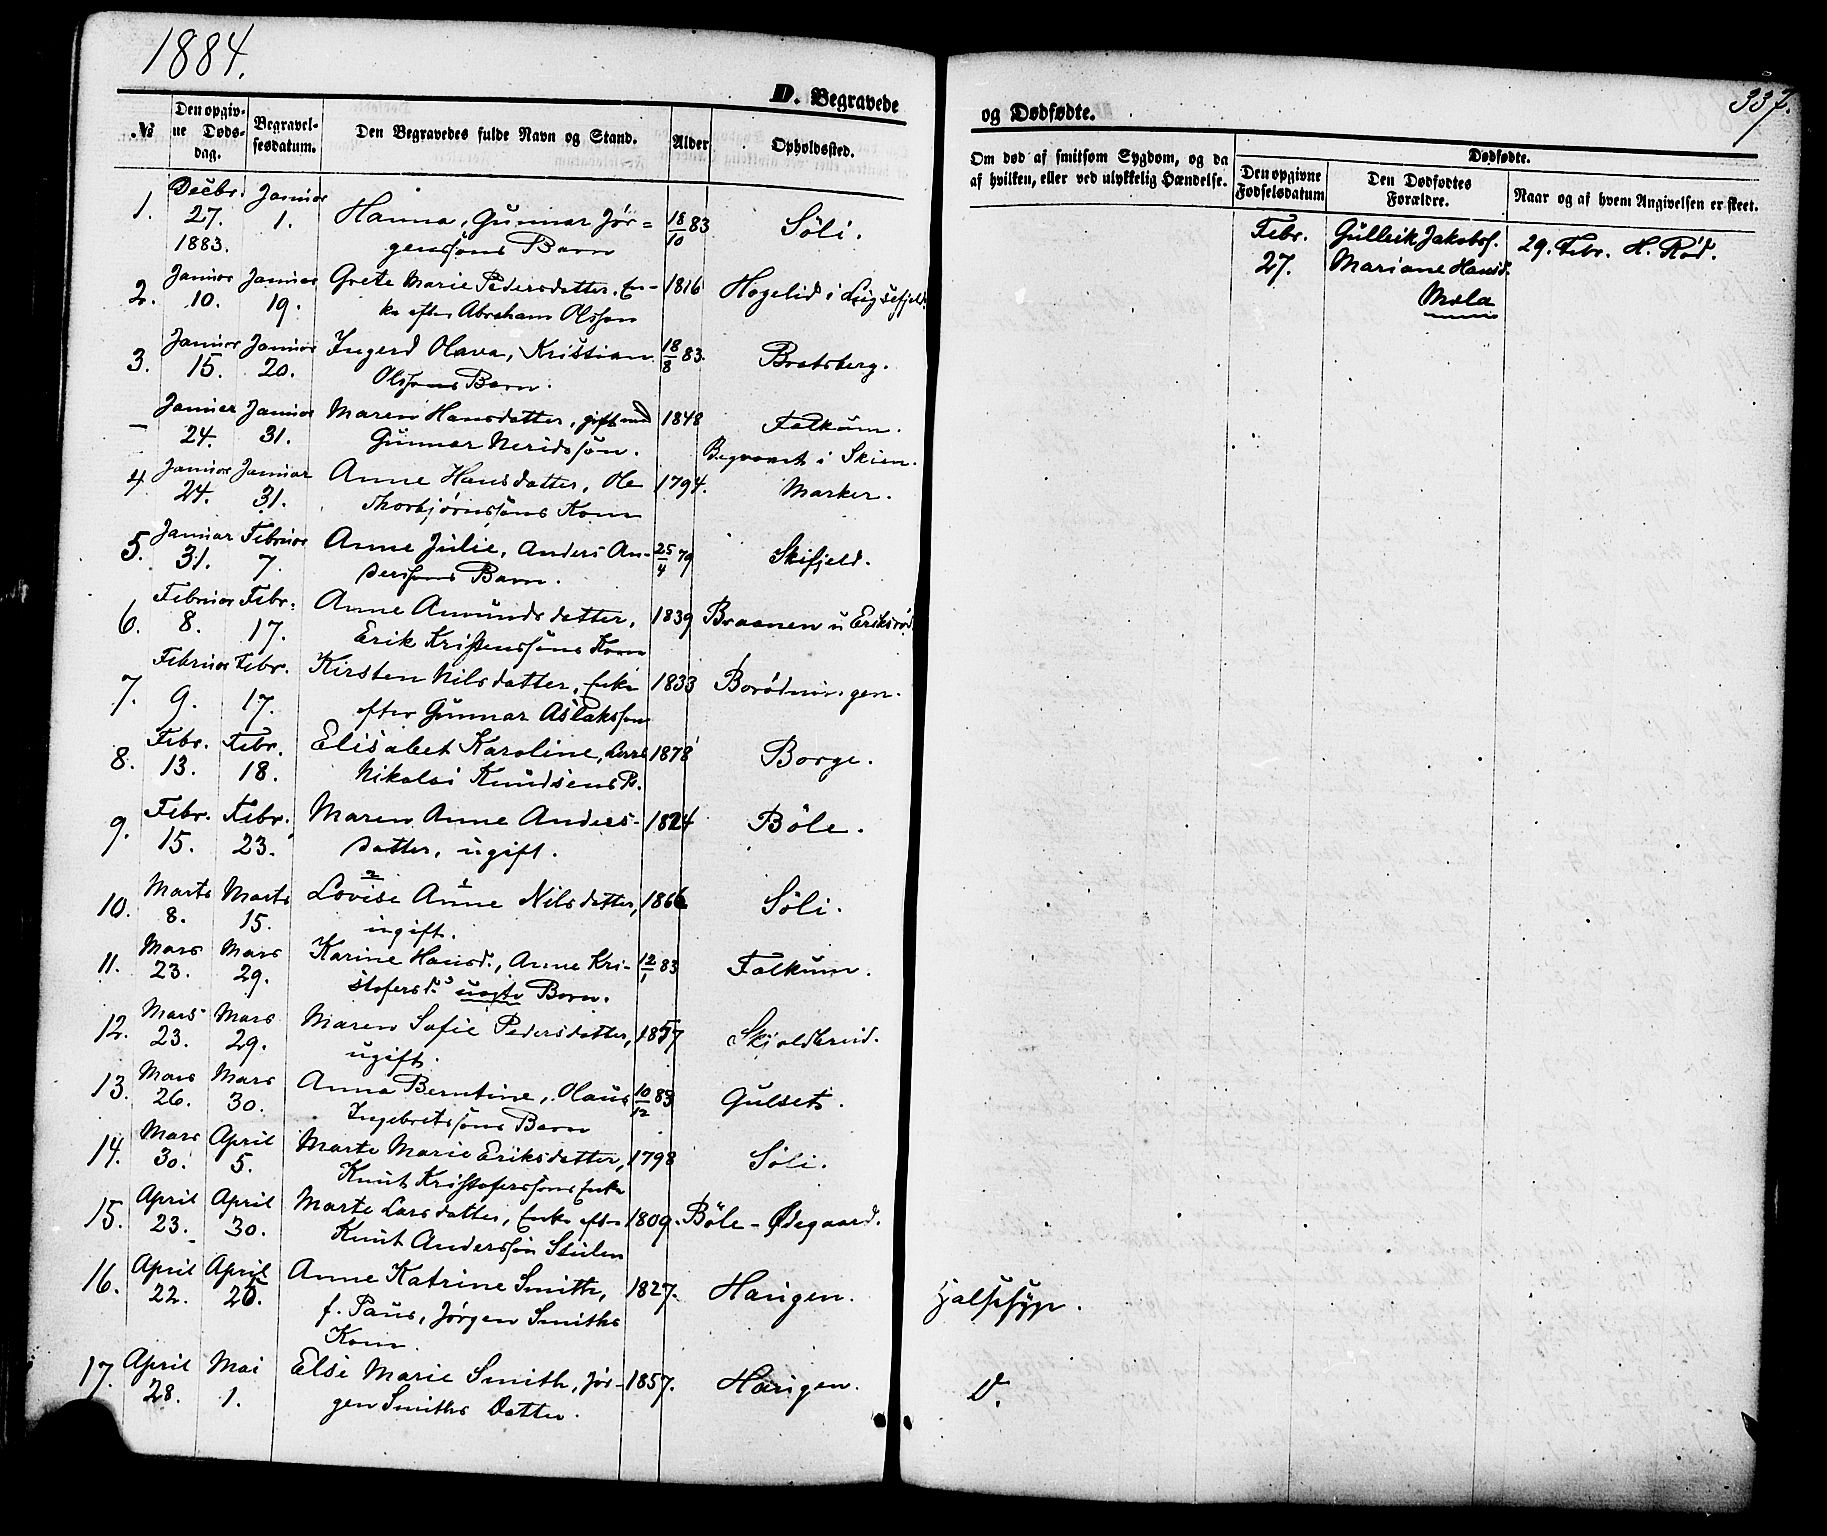 1884.
337.
D. Begravede
og Dødfødte.
№
Den opgiv-
ne Døds-
dag.
Begravel-
sesdatum.
Den Begravedes fulde Navn og Stand.
Alder
Opholdssted.
Om død af smitsom Sygdom, og da
af hvilken, eller ved ulykkelig Hændelse.
Dødfødte.
Den opgivne
Fødselsdatum
Den Dødfødtes
Forældre.
Naar og af hvem Angivelsen er skeet.
1. Decbr. 27. 1883. Januar 1. Hanna, Gunnar Jør- 18/10 83 Söli.
genssøns Barn
2. Januar 10. Januar 19. Grete Marie Pedersdatter, En- 1816 Hogelid i Luksefjeld
ke efter Abraham Olsson
3. Januar 15. Januar 20. Ingerd Olava, Kristian 18/8 83. Bratsberg.
Olssøns Barn.
– Januar 24. Januar 31. Maren Hansdatter, gift med 1848 Falkum.
Gunnar Neridssøn. Begravet i Skien.
4. Januar 24. Januar 31. Anne Hansdatter, Ole 1794. Marker.
Thorbjørnssøns Kone
5. Januar 31. Februar 7. Anne Julie, Anders An- 25/4 79 Skifjeld.
derssøns Barn.
6. Februar 8. Febr. 17. Anne Amundsdatter, 1839 Braanen u Eriksrød
Erik Kristenssøns Kone
7. Februar 9. Febr. 17. Kirsten Nilsdatter, Enke 1833 Borødningen.
efter Gunnar Aslaksson
8. Febr. 13. Febr. 18. Elisabet Karoline, Lars 1878 Borge.
Nikolai Knudsens B.
9. Febr. 15. Febr. 23. Maren Anne Anders- 1824 Böle.
datter, ugift.
10. Marts 8. Marts 15. Lovise Anne Nilsdatter, 1866 Söli.
2 1
ugift.
11. Mars 23. Mars 29. Karine Hansd., Anne Kri- 12/1 83 Falkum.
stofersd.s uægte Barn.
12. Mars 23. Mars 29. Maren Sofie Pedersdatter, 1857 Skjoldbreid.
ugift.
13. Mars 26. Mars 30. Anna Berntine, Olaus 10/12 83 Gulset.
Ingebretssøns Barn
14. Mars 30. April 5. Marte Marie Eriksdatter, 1798 Söli.
Knut Kristoferssøns Enke
15. April 23. April 30. Marte Larsdatter, Enke efter 1809. Böle - Ødegaard.
Knut Anderssøn Stulen
16. April 22. April 25. Anne Katrine Smith, 1827. Haugen. Halssyge.
f. Paus, Jørgen Smiths
Kone.
17. April 28. Mai 1. Else Marie Smith, Jør- 1857. Haugen. D.
gen Smiths Datter.
Febr. 27. Gullik Jakobs. 29. Febr. H. Röd.
Mariane Hansd.
Mæla